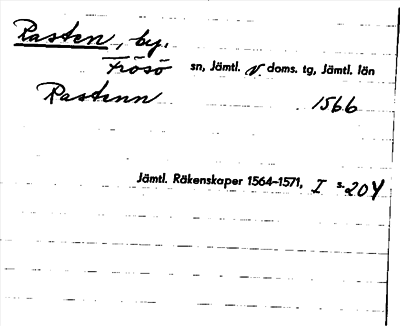 Rasten, by.
Frösö sn, Jämtl. v. doms. tg, Jämtl. län
Rastenn 1566
Jämtl. Räkenskaper 1564-1571, I s. 204